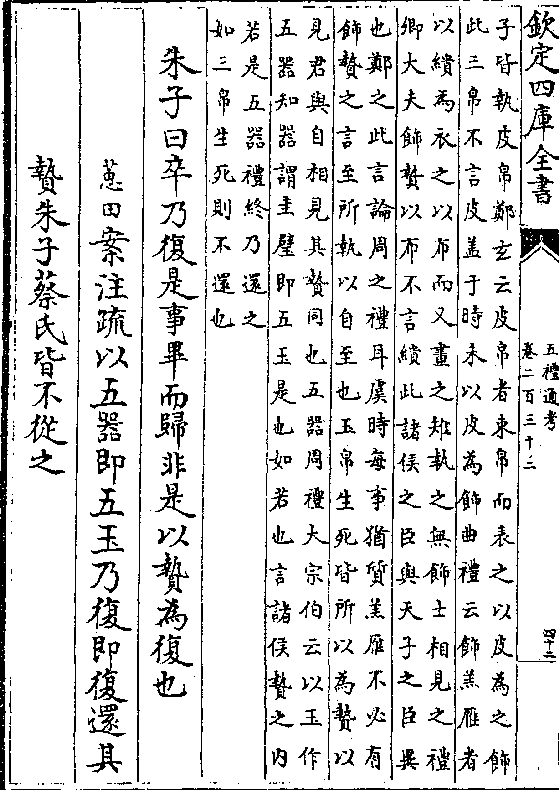 欽定四庫全書
五禮通考
卷二百三十二
四十二
子皆執皮帛鄭玄云皮帛者束帛而表之以皮為之飾
此三帛不言皮蓋于時未以皮為飾曲禮云飾羔雁者
以繢為衣之以布而又畫之雉執之無飾士相見之禮
卿大夫飾贄以布不言繢此諸侯之臣與天子之臣異
也鄭之此言論周之禮耳虞時每事猶質羔雁不必有
飾贄之言至所執以自至也玉帛生死皆所以為贄以
見君與自相見其贄同也五器周禮大宗伯云以玉作
五器知器謂圭璧即五玉是也如若也言諸侯贄之内
若是五器禮終乃還之
如三帛生死則不還也
朱子曰卒乃復是事畢而歸非是以贄為復也
蕙田案注疏以五器即五玉乃復即復還其
贄朱子蔡氏皆不從之